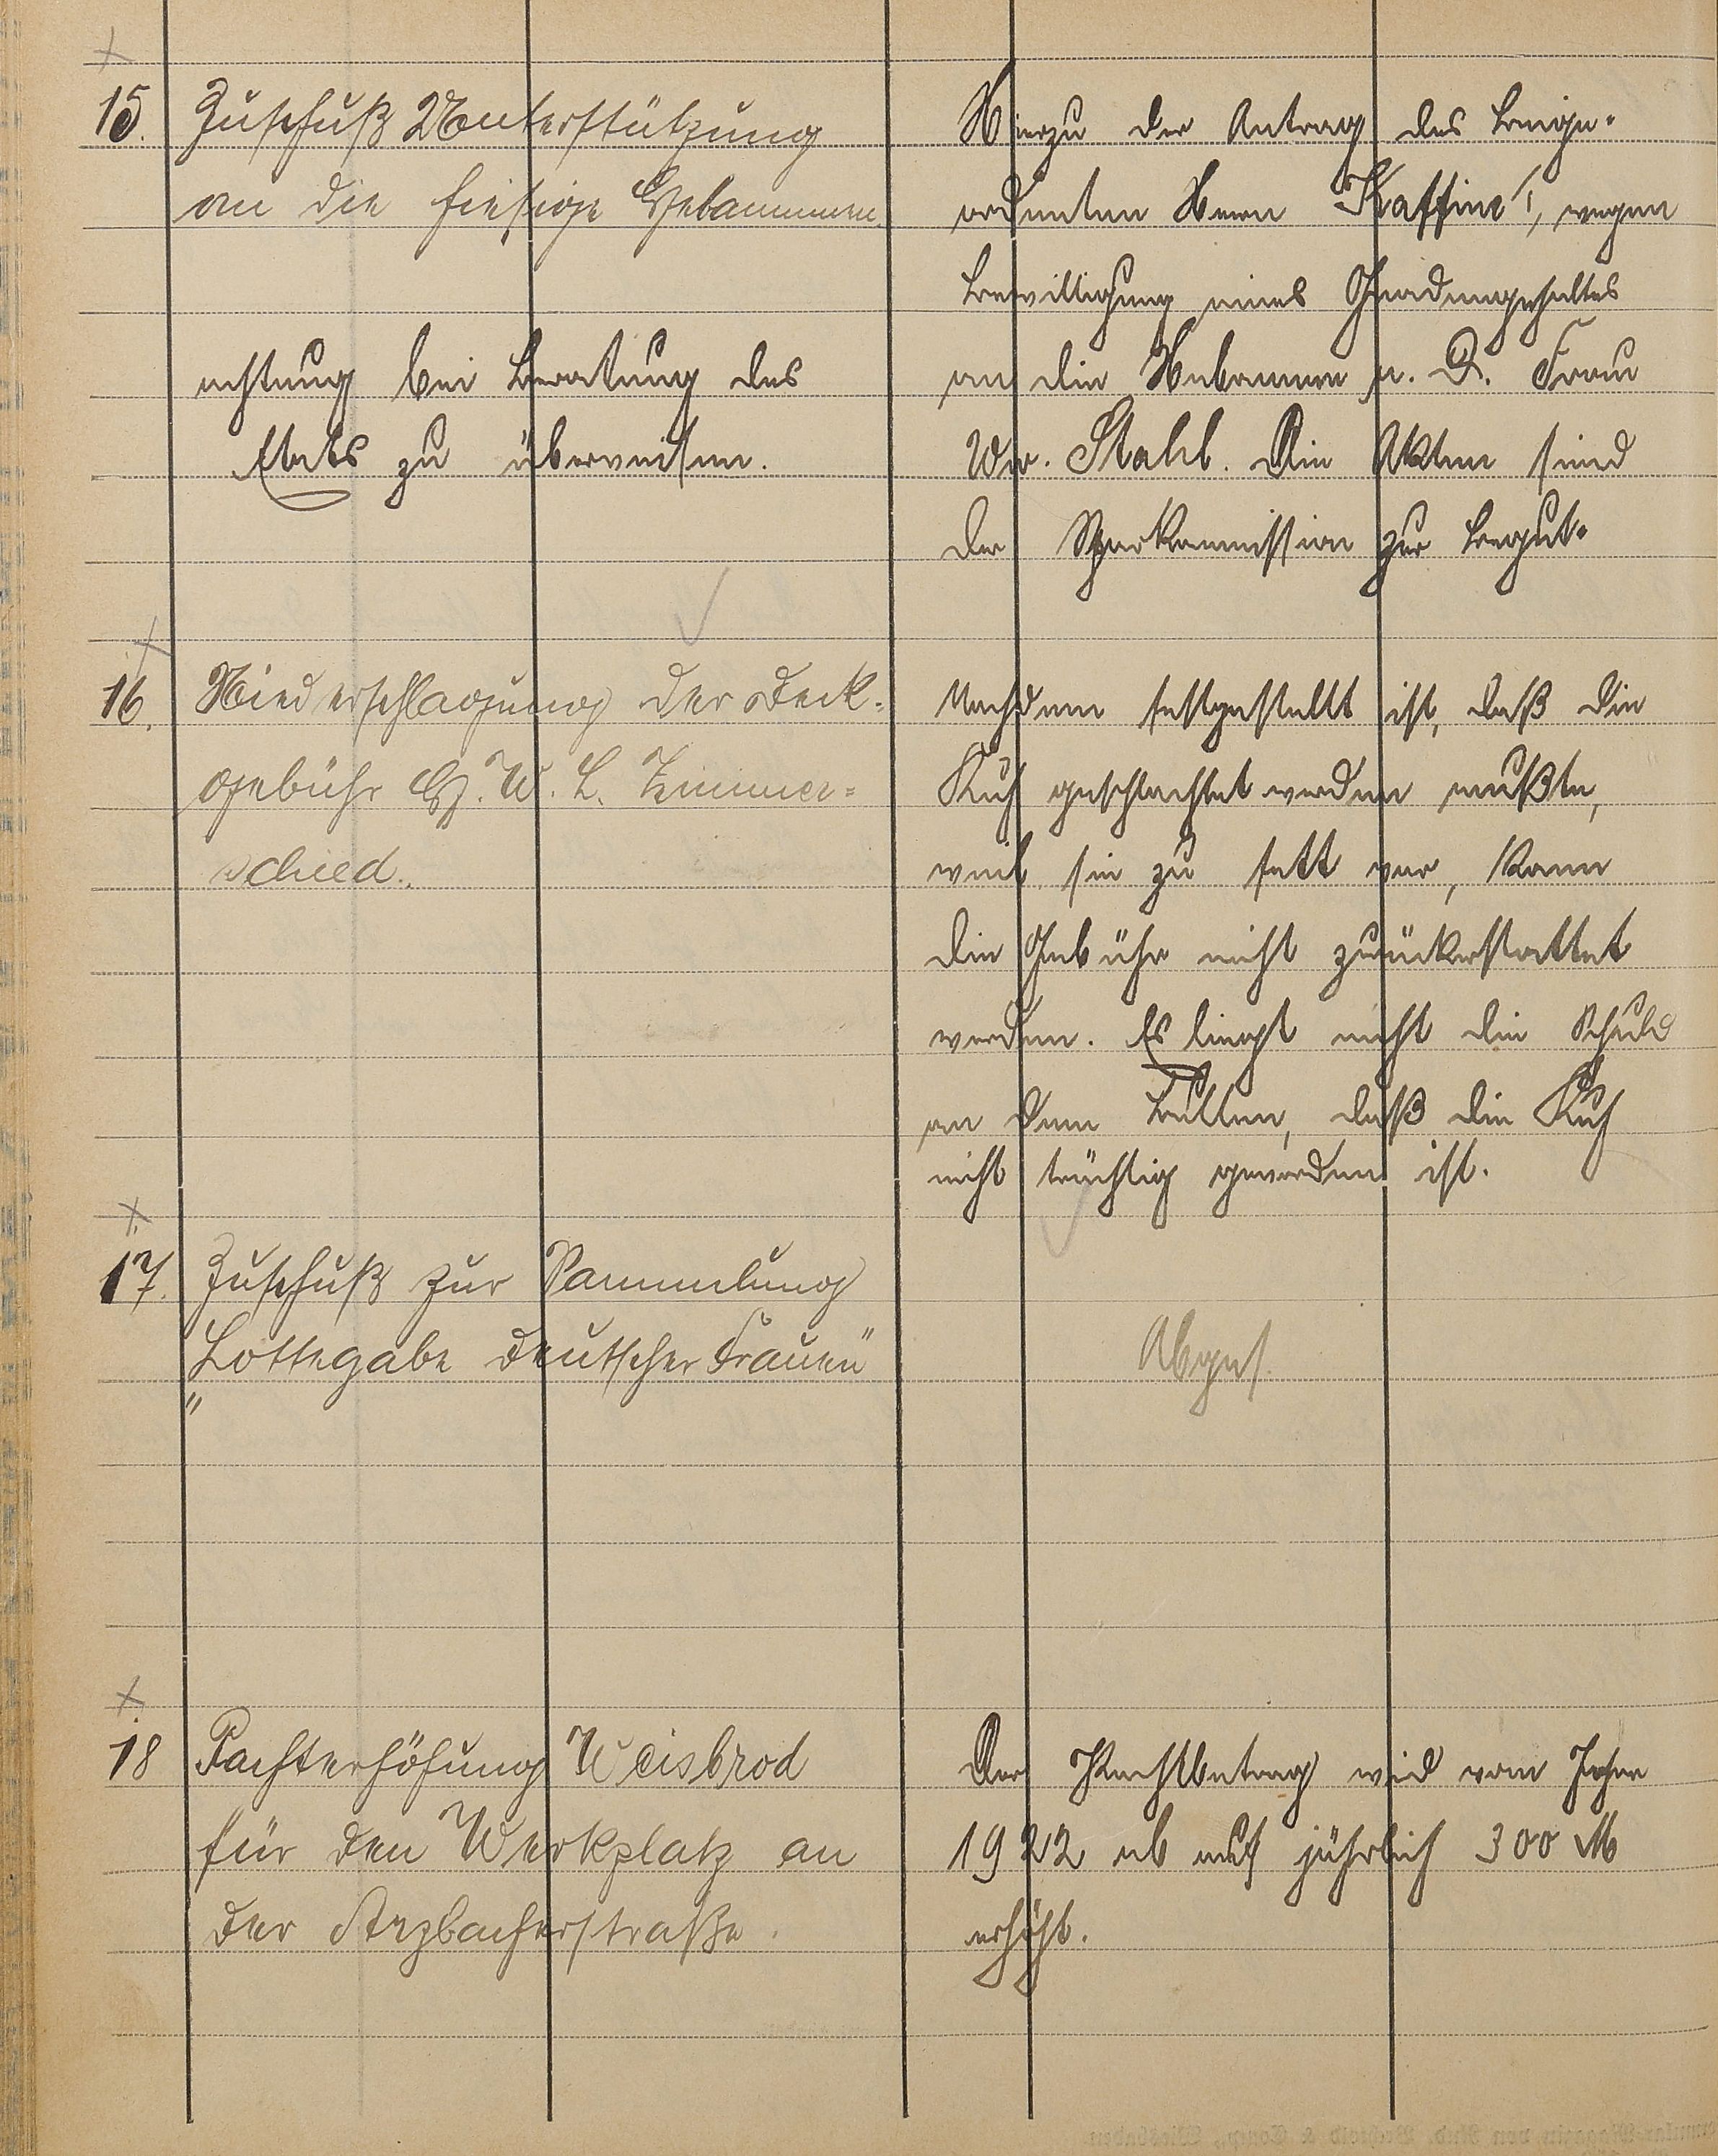 15. Zuschuß Unterstützung
an die hiesige Hebammen.
Hierzu der Antrag des Beige-
ordneten Herrn Kaffine', wegen
Bewilligung eines Gnadengehaltes
an die Hebamme a. D. Frau
Ww. Stahl. Die Akten sind
der Sparkommission zur Begut-
achtung bei Beratung des
Etats zu überweisen.
16. Niederschlagung der Deck-
gebühr H. W. L. Zimmer-
schied.
Nachdem festgestellt ist, daß die
Kuh geschlachtet werden mußte,
weil sie zu fett war, kann
die Gebühr nicht zurückerstattet
werden. Es liegt nicht die Schuld
an dem Bullen, daß die Kuh
nicht trächtig geworden ist.
17. Zuschuß zur Sammlung
"Lottegabe deutscher Frauen"
Abges.
18 Pachterhöhung Weisbrod
für den Werkplatz an
der Arzbacherstraße.
Der Pachtbetrag wird vom Jahre
1922 ab auf jährlich 300 M
erhöht.